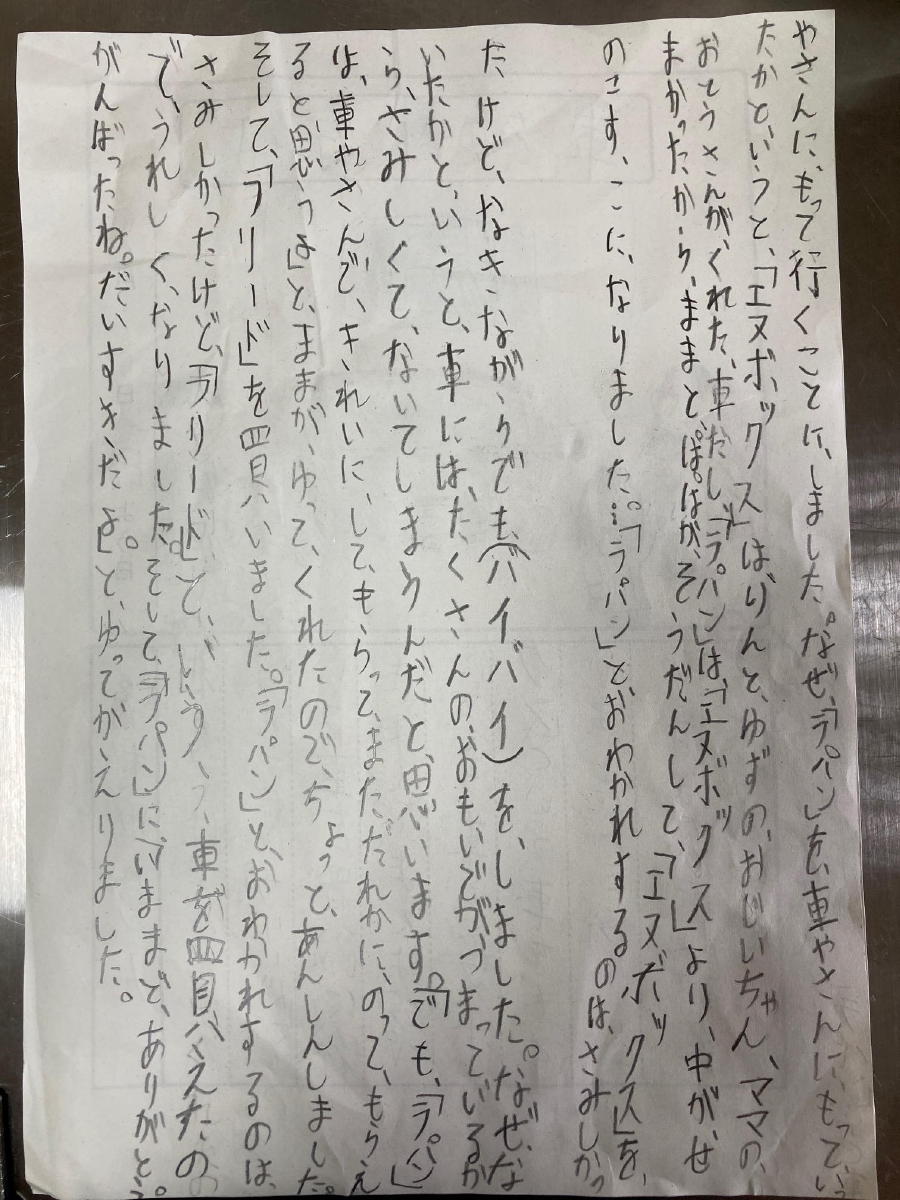 やさんに、もって行くことに、しました。なぜ、「ラパン」を、車やさんに、もってい
たかというと、「エヌボックス」は、りんと、ゆずの、おじいちゃん、ママの、
おとうさんが、くれた、車だし、「ラパン」は、「エヌボックス」より、中がせ
まかったから、ままと、ぱぱが、そうだんして、「エヌボックス」を、
のこす、ことに、なりました…。「ラパン」とおわかれするのは、さみしかっ
たけど、なきながらでも、(バイバイ)を、しました。なぜ、な
いたかと、いうと、車には、たくさんの、おもいでが、つまっているか
ら、さみしくて、ないてしまうんだと、思います。「でも、「ラパン」
は、車やさんで、きれいに、して、もらって、まただれかに、のって、もらえ
ると思うよ」と、ままが、ゆって、くれたので、ちょっと、あんしんしました。
そして、「フリード」を買いました。「ラパン」と、おわかれするのは、
さみしかったけど、「フリード」と、いう、車を買えたの
で、うれしく、なりました。そして、「ラパン」に、「いままで、ありがとう。
がんばったね。だいすきだよ。」と、ゆってかえりました。